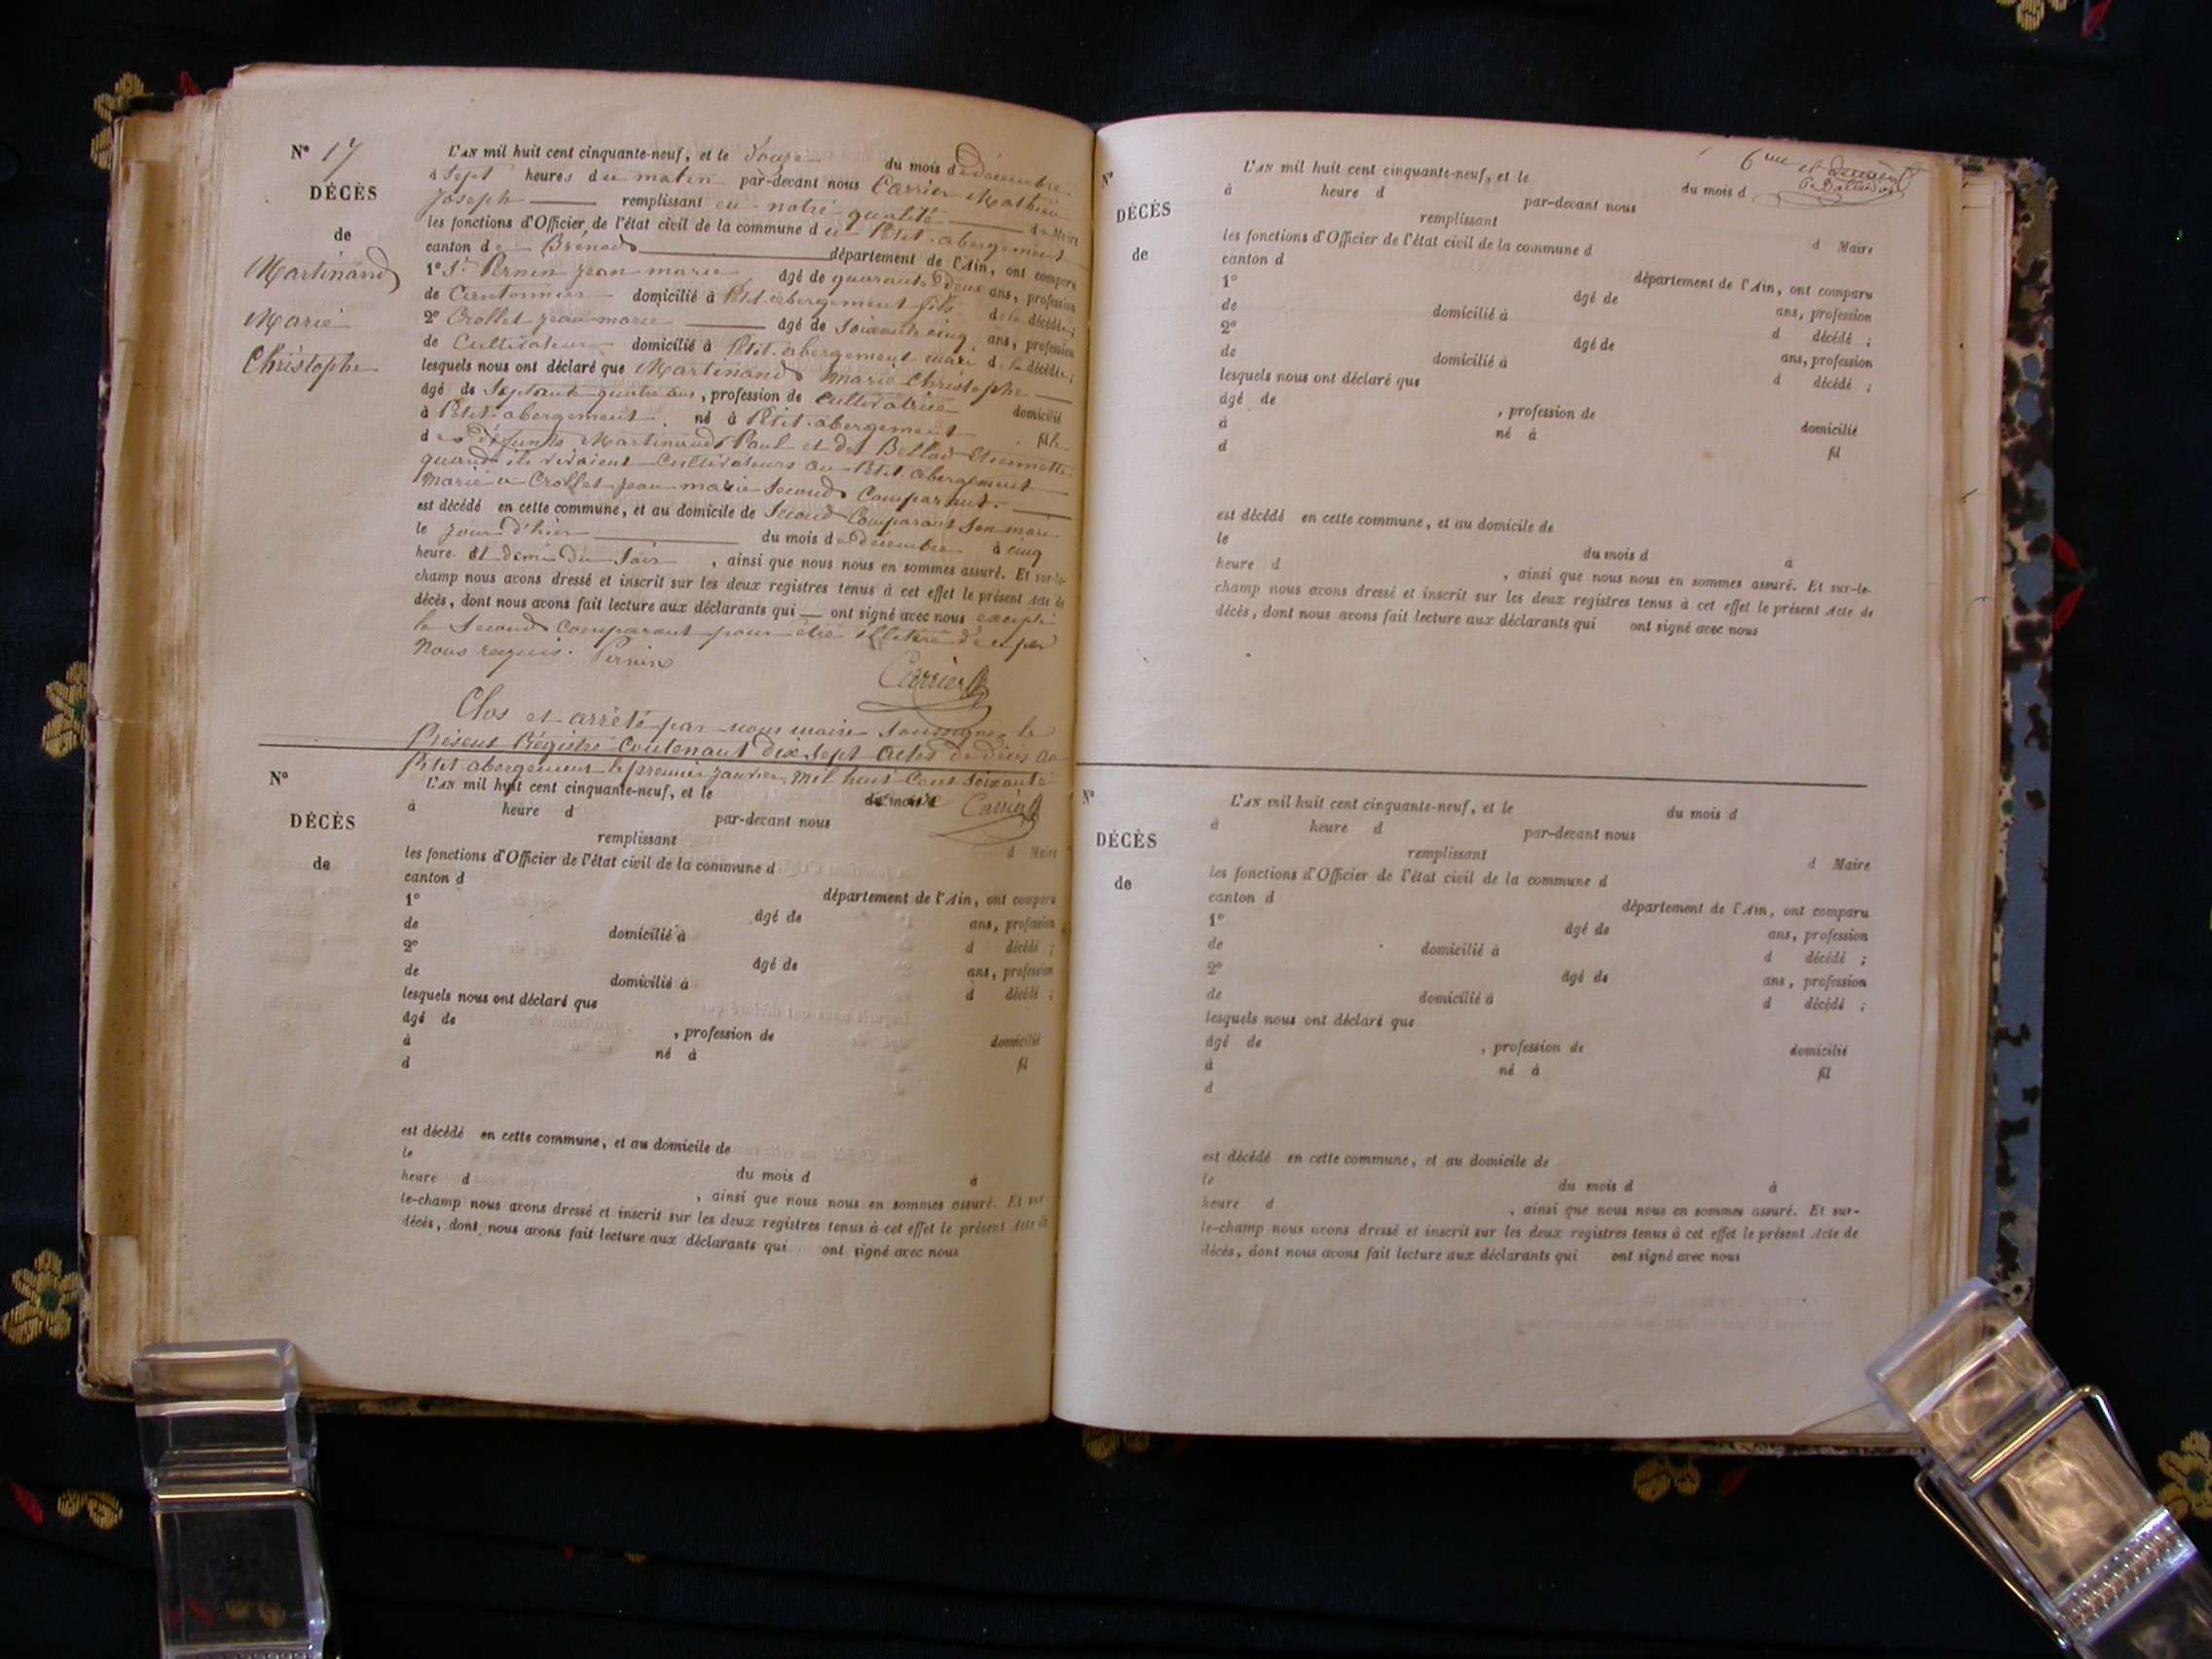 N° 17
DÉCÈS
de
Martinand
Marie
Christophe
L'AN mil huit cent cinquante-neuf, et le douze du mois de décembre
à Sept heures du matin par-devant nous Carrier Mathieu
Joseph remplissant en notre qualité de Maire
les fonctions d'Officier de l'état civil de la commune du Petit-abergement
canton de Brénod département de l'Ain, ont comparu
1° St Pernin jean marie âgé de quarante deux ans, profession
de Cantonnier domicilié à Petit-abergement fils de la décédée;
2° Crollet jean marie âgé de Soixante cinq ans, profession
de Cultivateur domicilié à Petit-abergement mari de la décédée;
lesquels nous ont déclaré que Martinand marie Christophe
âgé de Septante quatre ans, profession de Cultivatrice domicilié
à Petit-abergement né à Petit-abergement fille
des défunts Martinand Paul et de Etiennette
quand ils vivaient Cultivateurs au Petit-abergement
mariée a Crollet jean marie Second Comparant.
est décédé en cette commune, et au domicile de Second Comparant Son mari
le jour d'hier du mois de décembre à cinq
heure et demi du Soir, ainsi que nous nous en sommes assuré. Et sur-le-
champ nous avons dressé et inscrit sur les deux registres tenus à cet effet le présent Acte de
décès, dont nous avons fait lecture aux déclarants qui — ont signé avec nous excepté
le Second Comparant pour être illétéré de ce par
Nous requis. Pernin
Carrier
Clos et arrêté par nous maire Soussigné le
Présent Régistre Contenant dix Sept actes de décès au
Petit abergement le premier janvier, mil huit Cent Soixante
Carrier
N°
DÉCÈS
de
L'AN mil huit cent cinquante-neuf, et le du mois d
à heure d par-devant nous
remplissant d Maire
les fonctions d'Officier de l'état civil de la commune d
canton d département de l'Ain, ont comparu
1° âgé de ans, profession
de domicilié à d décédé ;
2° âgé de ans, profession
de domicilié à d décédé ;
lesquels nous ont déclaré que
âgé de , profession de domicilié
à né à fil
d
est décédé en cette commune, et au domicile de
le du mois d à
heure d , ainsi que nous nous en sommes assuré. Et sur-
le-champ nous avons dressé et inscrit sur les deux registres tenus à cet effet le présent Acte de
décès, dont nous avons fait lecture aux déclarants qui ont signé avec nous
6me et dernier
N°
DÉCÈS
de
L'AN mil huit cent cinquante-neuf, et le du mois d
à heure d par-devant nous
remplissant d Maire
les fonctions d'Officier de l'état civil de la commune d
canton d département de l'Ain, ont comparu
1° âgé de ans, profession
de domicilié à d décédé ;
2° âgé de ans, profession
de domicilié à d décédé ;
lesquels nous ont déclaré que
âgé de , profession de domicilié
à né à fil
d
est décédé en cette commune, et au domicile de
le du mois d à
heure d , ainsi que nous nous en sommes assuré. Et sur-le-
champ nous avons dressé et inscrit sur les deux registres tenus à cet effet le présent Acte de
décès, dont nous avons fait lecture aux déclarants qui ont signé avec nous
N°
DÉCÈS
de
L'AN mil huit cent cinquante-neuf, et le du mois d
à heure d par-devant nous
remplissant d Maire
les fonctions d'Officier de l'état civil de la commune d
canton d département de l'Ain, ont comparu
1° âgé de ans, profession
de domicilié à d décédé ;
2° âgé de ans, profession
de domicilié à d décédé ;
lesquels nous ont déclaré que
âgé de , profession de domicilié
à né à fil
d
est décédé en cette commune, et au domicile de
le du mois d à
heure d , ainsi que nous nous en sommes assuré. Et sur-
le-champ nous avons dressé et inscrit sur les deux registres tenus à cet effet le présent Acte de
décès, dont nous avons fait lecture aux déclarants qui ont signé avec nous